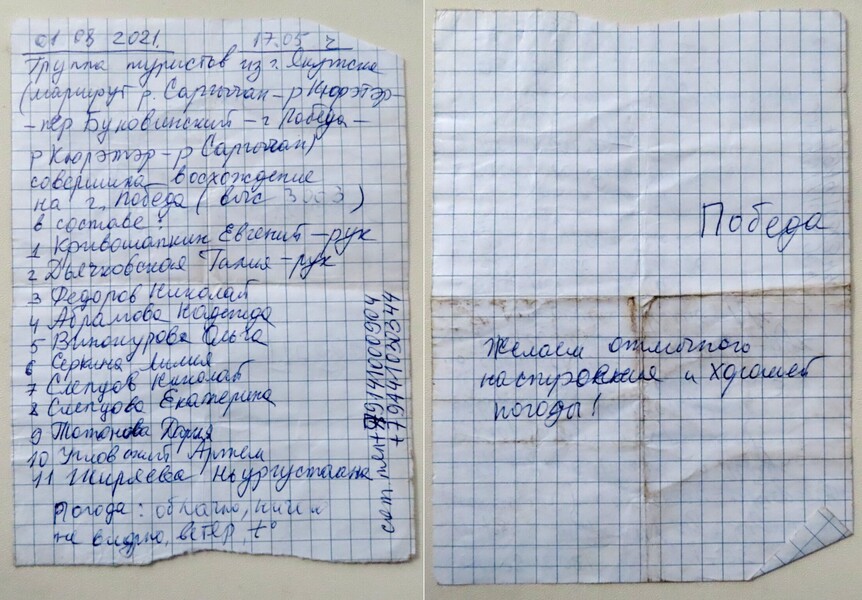 01 08 2021. 17.05 ч
Группа туристов из г. Якутска
(маршрут р. Саргычан – р Кюрэтэр –
– пер Буковинский – г Победа –
р Кюрэтэр – р Саргычан)
совершила восхождение
на г. Победа (выс 3003)
в составе:
1 Кривошапкин Евгений – рук
2 Дьячковская Талия – рук
3 Федоров Николай
4 Абрамова Надежда
5 Винокурова Ольга
6 Серкина Лилия
7 Слепцов Николай
8 Слепцова Екатерина
9 Тотонова Дария
10 Угловский Артем
11 Ширяева Ньургустаана
Погода: облачно, ничего
не видно, ветер, t°
сот. тел +79141000904
Победа
Желаем отличного
настроения и хорошей
погоды!